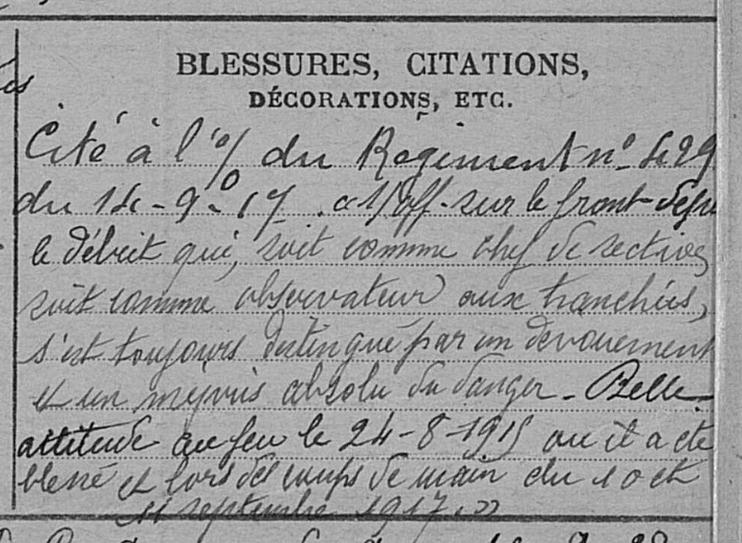 BLESSURES, CITATIONS,
DÉCORATIONS, ETC.
Cité à l'o/ du Régiment n° 429
du 14-9-17. "S/off. sur le front depuis
le début qui, soit comme chef de section,
soit comme observateur aux tranchées,
s'est toujours distingué par un dévouement
et un mépris absolu du danger - Belle
attitude au feu le 24-8-1915 ou il a été
blessé et lors des coups de main du 10 et
11 septembre 1917."